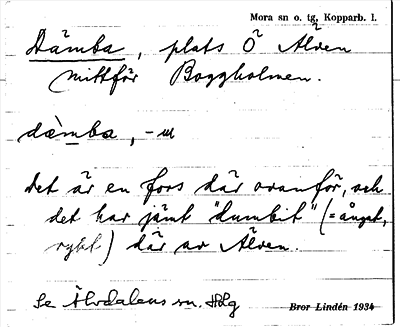 Mora sn o. tg, Kopparb. l.
Dämba, plats Ö Älven
mittför Boggholmen.
dä̀mba, -ɯ
Det är en fors där ovanför, och
det har jämt "dumbit" (= ånget,
rykt) där av Älven.
Se Älvdalens sn.
Bror Lindén 1934